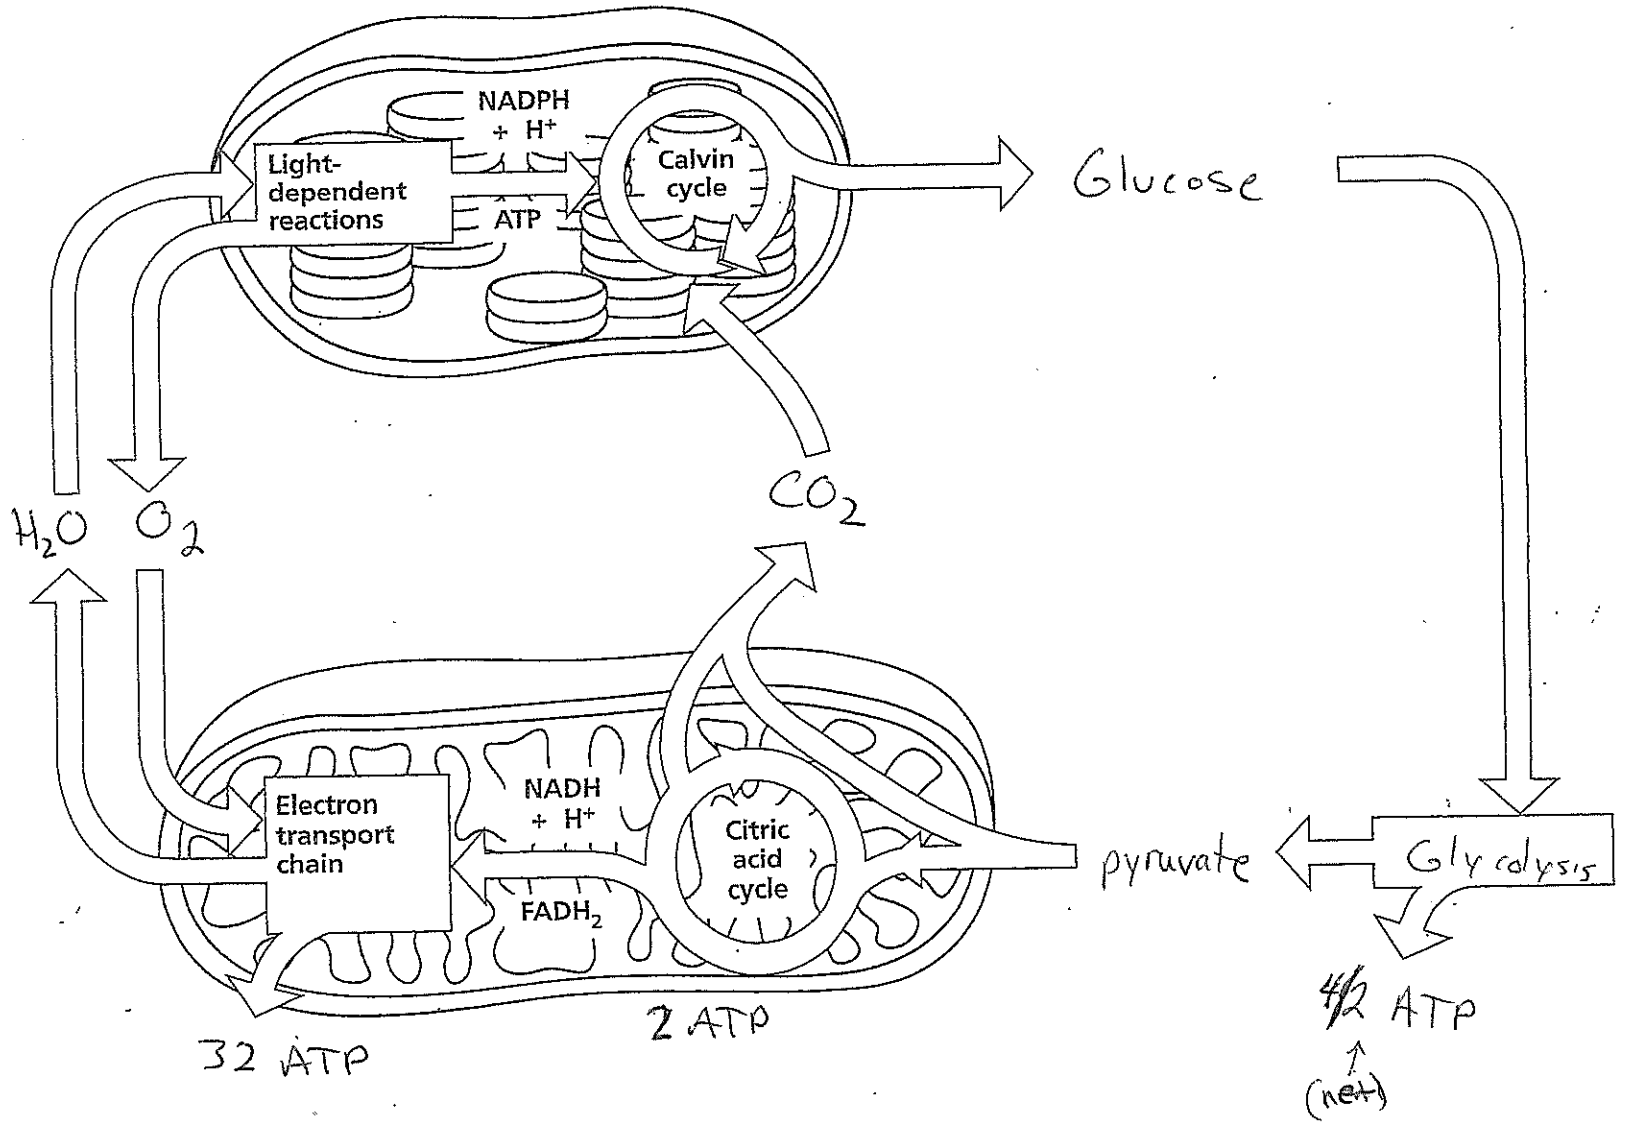 NADPH
+ H⁺
Light-
dependent
reactions
ATP
Calvin
cycle
Glucose
H₂O
O₂
CO₂
Electron
transport
chain
NADH
+ H⁺
FADH₂
Citric
acid
cycle
pyruvate
Glycolysis
32 ATP
2 ATP
4/2 ATP
(net)